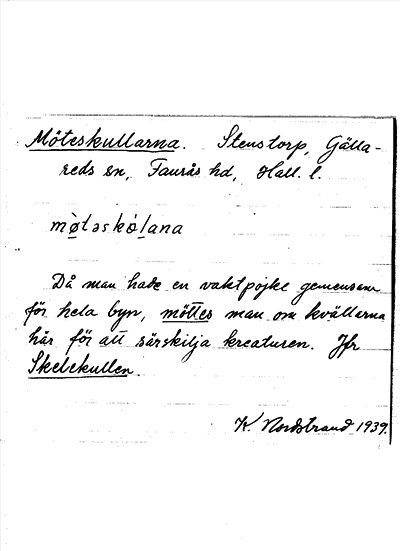 Möteskullarna. Stenstorp, Gälla-
reds sn, Faurås hd, Hall. l.
mø̀təskö́l̥ana
Då man hade en vaktpojke gemensam
för hela byn, möttes man om kvällarna
här för att särskilja kreaturen. Jfr
Skelskullen.
K. Nordstrand 1939.